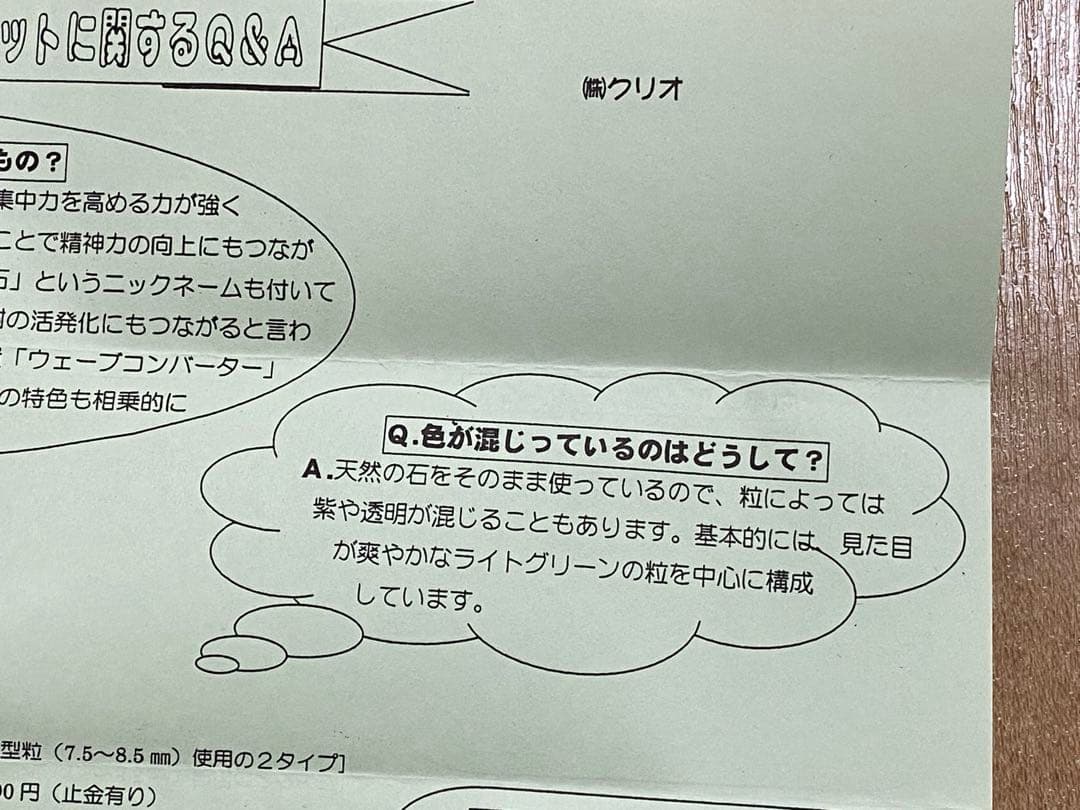 ットに関するQ&A
㈱クリオ
もの？
集中力を高める力が強く
ことで精神力の向上にもつなが
石」というニックネームも付いて
の活発化にもつながると言わ
「ウェーブコンバーター」
の特色も相乗的に
Q.色が混じっているのはどうして？
A.天然の石をそのまま使っているので、粒によっては
紫や透明が混じることもあります。基本的には、見た目
が爽やかなライトグリーンの粒を中心に構成
しています。
型粒（7.5～8.5㎜）使用の２タイプ］
00円（止金有り）